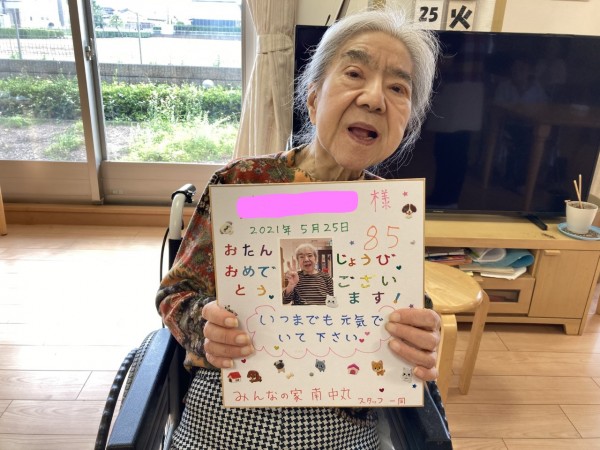 25 火
様
2021年 5月25日
85
おたん じょうび
おめで ござい
とう ます!
いつまでも元気で
いて下さい。
みんなの家 南中丸 スタッフ一同